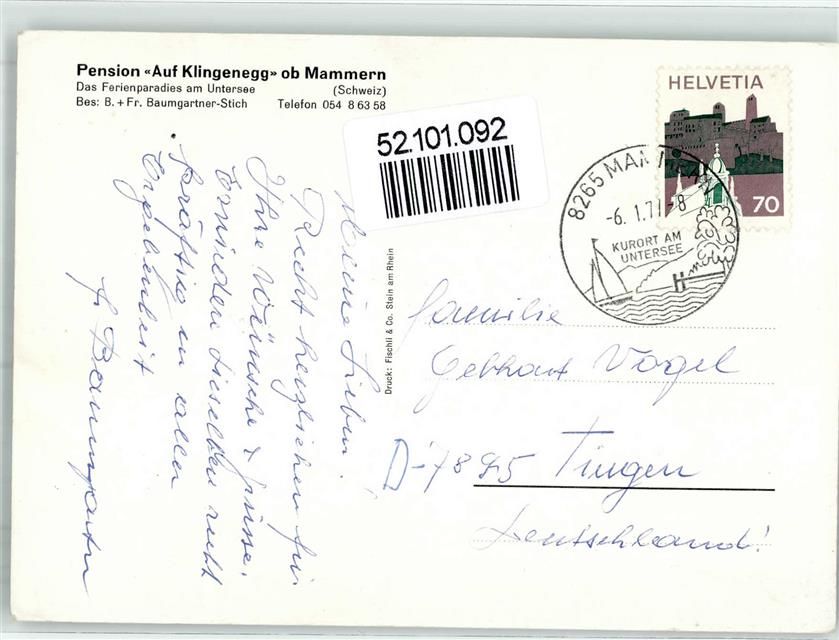 Pension «Auf Klingenegg» ob Mammern
Das Ferienparadies am Untersee (Schweiz)
Bes: B. + Fr. Baumgartner-Stich Telefon 054 8 63 58
52.101.092
HELVETIA
70
8265 MAMMERN
-6. 1.7 -8
KURORT AM
UNTERSEE
Druck: Fischli & Co. Stein am Rhein
Meine Lieben!
Recht herzlichen für
Ihre Wünsche & Grüsse.
Erwidern dieselben recht
kräftig in aller
Ergebenheit
Fr. Baumgartner
Familie
Gebhart Vogel
D-7895 Tingen
Deutschland!